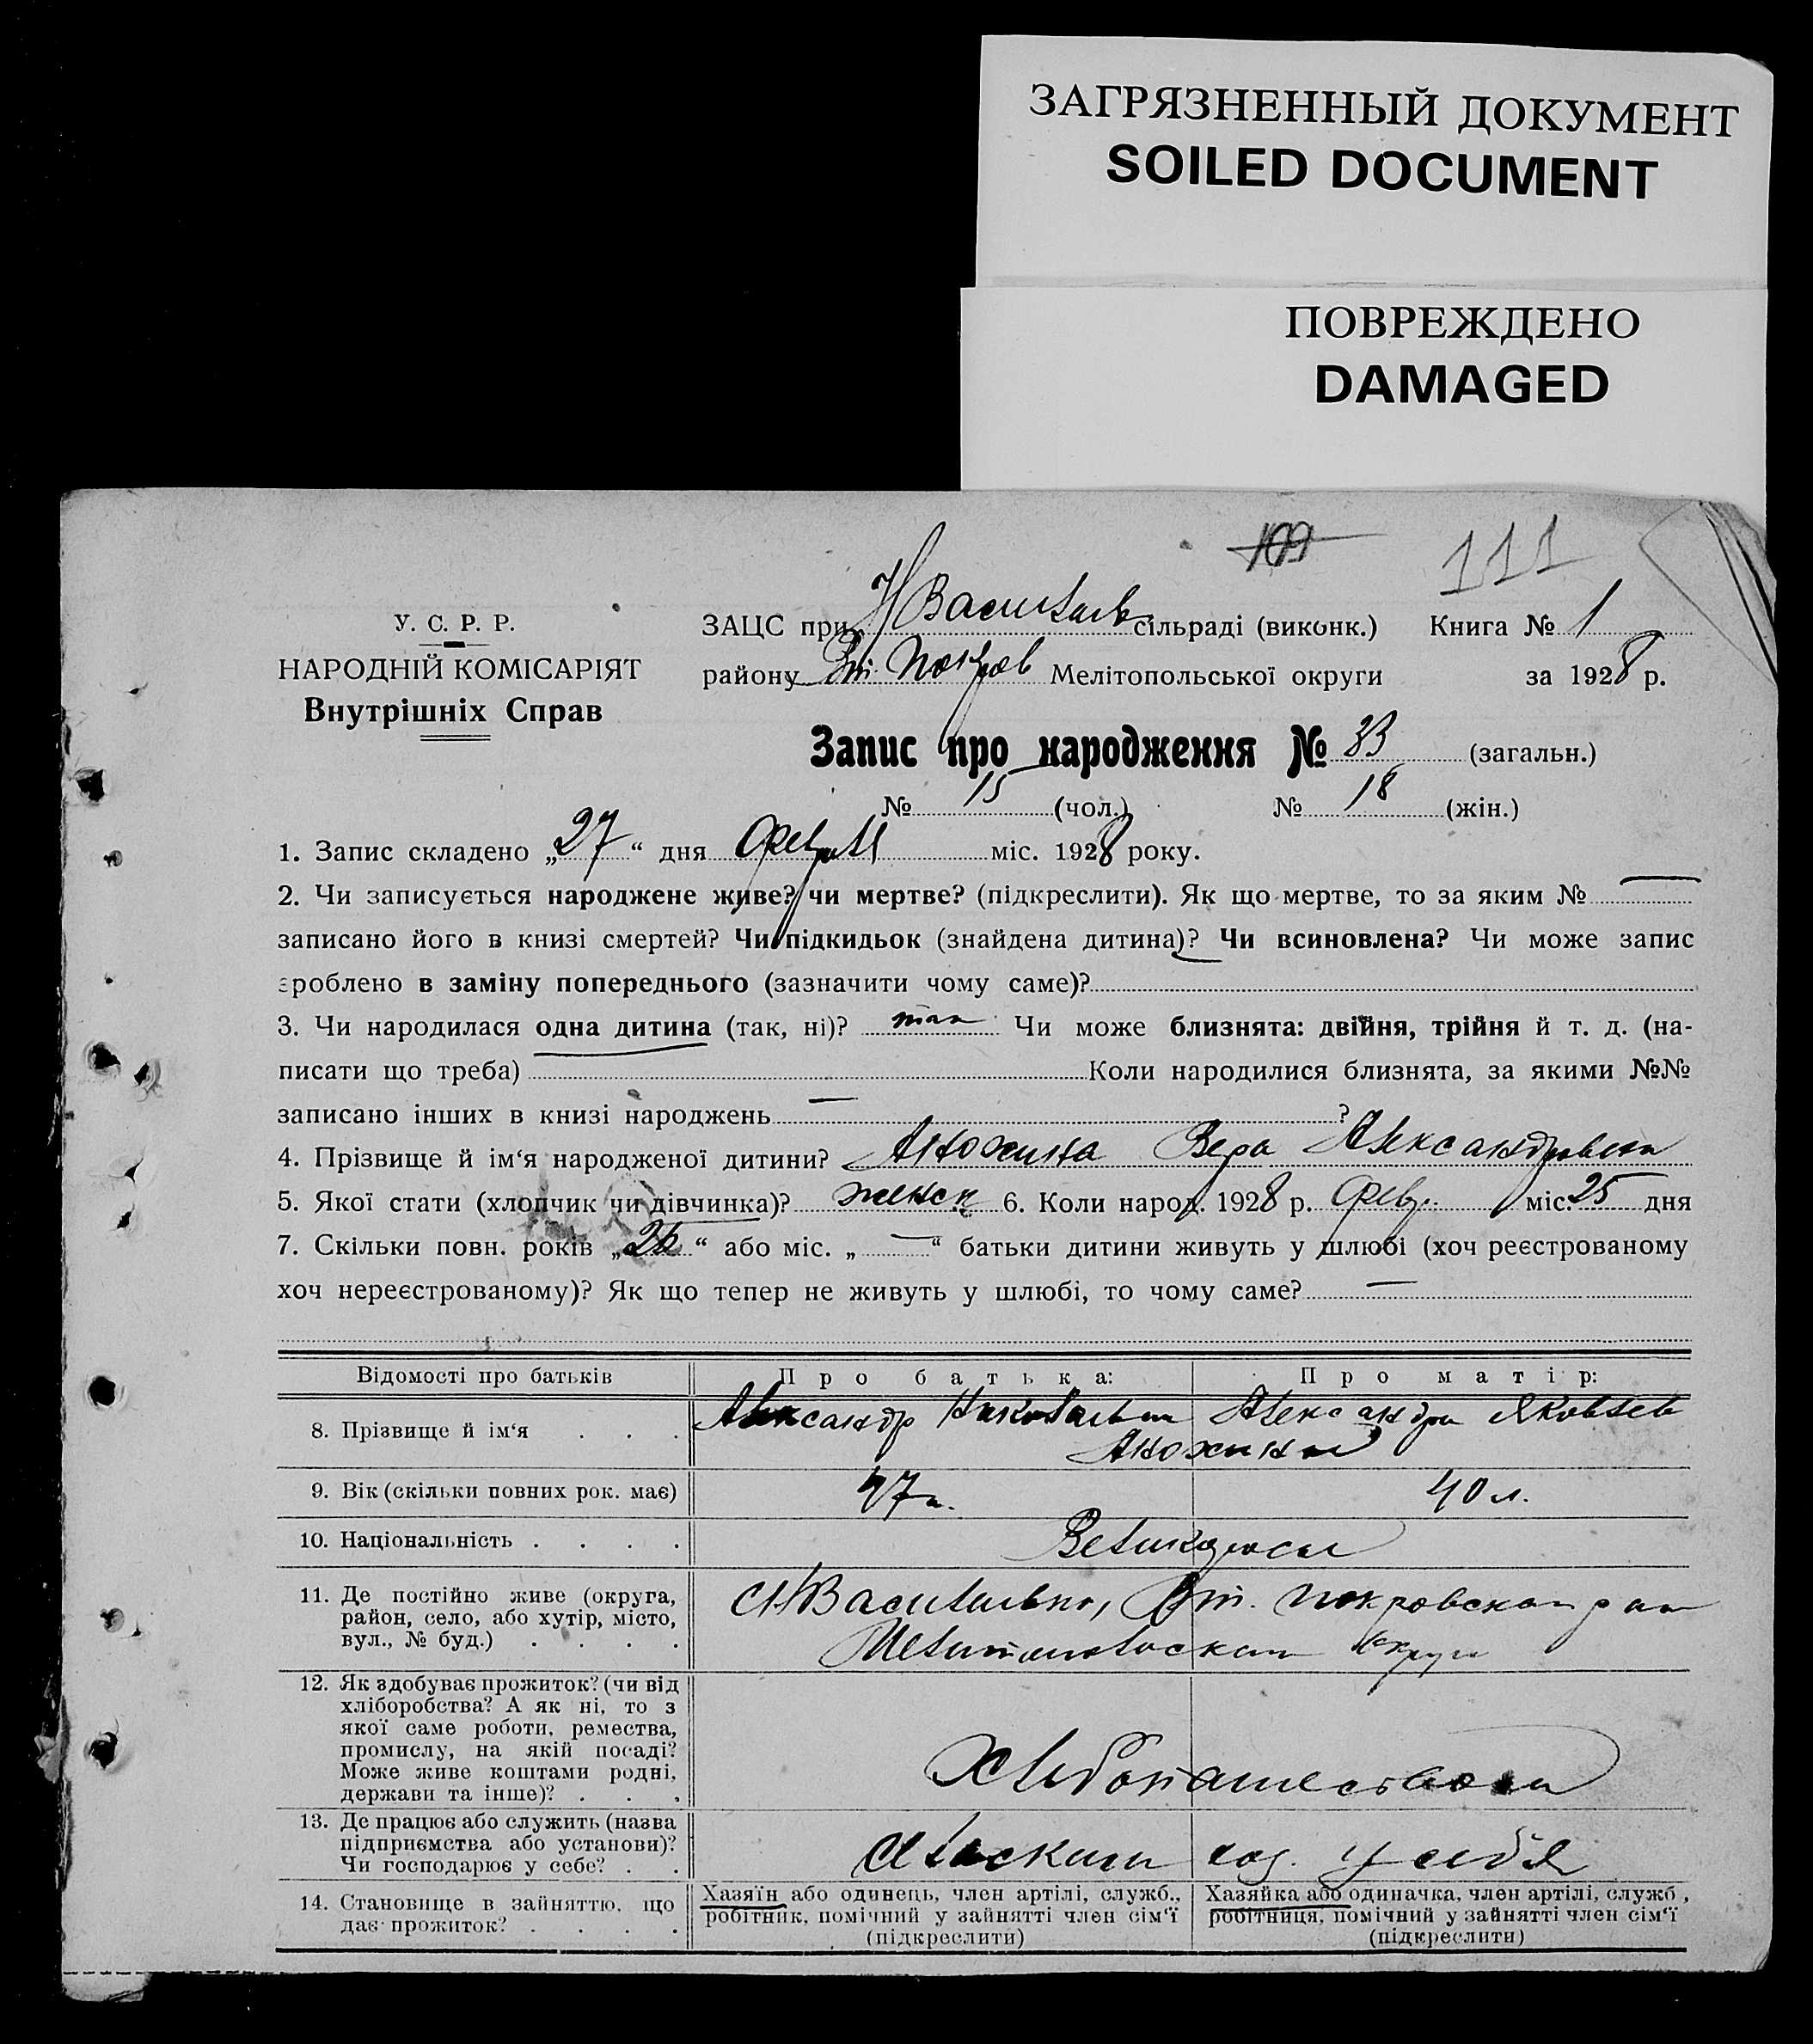 ЗАГРЯЗНЕННЫЙ ДОКУМЕНТ
SOILED DOCUMENT
ПОВРЕЖДЕНО
DAMAGED
109 111
У. С. Р. Р.
НАРОДНІЙ КОМІСАРІЯТ
Внутрішніх Справ
ЗАЦС при Н Васильев. сільраді (виконк.) Книга № 1
району Вт. Покров Мелітопольської округи за 1928 р.
Запис про народження № 33 (загальн.)
№ 15 (чол.) № 18 (жін.)
1. Запис складено „27“ дня міс. 1928 року.
2. Чи записується народжене живе? чи мертве? (підкреслити). Як що мертве, то за яким № —
записано його в книзі смертей? Чи підкидьок (знайдена дитина)? Чи всиновлена? Чи може запис
зроблено в заміну попереднього (зазначити чому саме)?
3. Чи народилася одна дитина (так, ні)? так Чи може близнята: двійня, трійня й т. д. (на-
писати що треба) Коли народилися близнята, за якими №№
записано інших в книзі народжень — ?
4. Прізвище й ім‘я народженої дитини? Анохина Вера Александровна
5. Якої стати (хлопчик чи дівчинка)? женск 6. Коли народ. 1928 р. Февр. міс. 25 дня
7. Скільки повн. років „26“ або міс. „—“ батьки дитини живуть у шлюбі (хоч реєстрованому
хоч нереєстрованому)? Як що тепер не живуть у шлюбі, то чому саме? —
Відомості про батьків Про батька: Про матір:
8. Прізвище й ім‘я . . . Александр Николаевич Александра Яковлев
Анохины
9. Вік (скільки повних рок. має) 47 л. 40 л.
10. Національність . . . . Великоросы
11. Де постійно живе (округа,
район, село, або хутір, місто,
вул., № буд.) . . . .
с Н Васильевка, Вт. Покровского р
Мелитопольской округи
12. Як здобуває прожиток? (чи від
хліборобства? А як ні, то з
якої саме роботи, ремества,
промислу, на якій посаді?
Може живе коштами родні,
держави та інше)? . . .
Хлебопашеством
13. Де працює або служить (назва
підприємства або установи)?
Чи господарює у себе? . .
сельским хоз. у себя
14. Становище в зайняттю, що
дає прожиток? . . . .
Хазяїн або одинець, член артілі, служб.,
робітник, помічний у зайнятті член сім‘ї
(підкреслити)
Хазяйка або одиначка, член артілі, служб ,
робітниця, помічний у зайнятті член сім‘ї
(підкреслити)